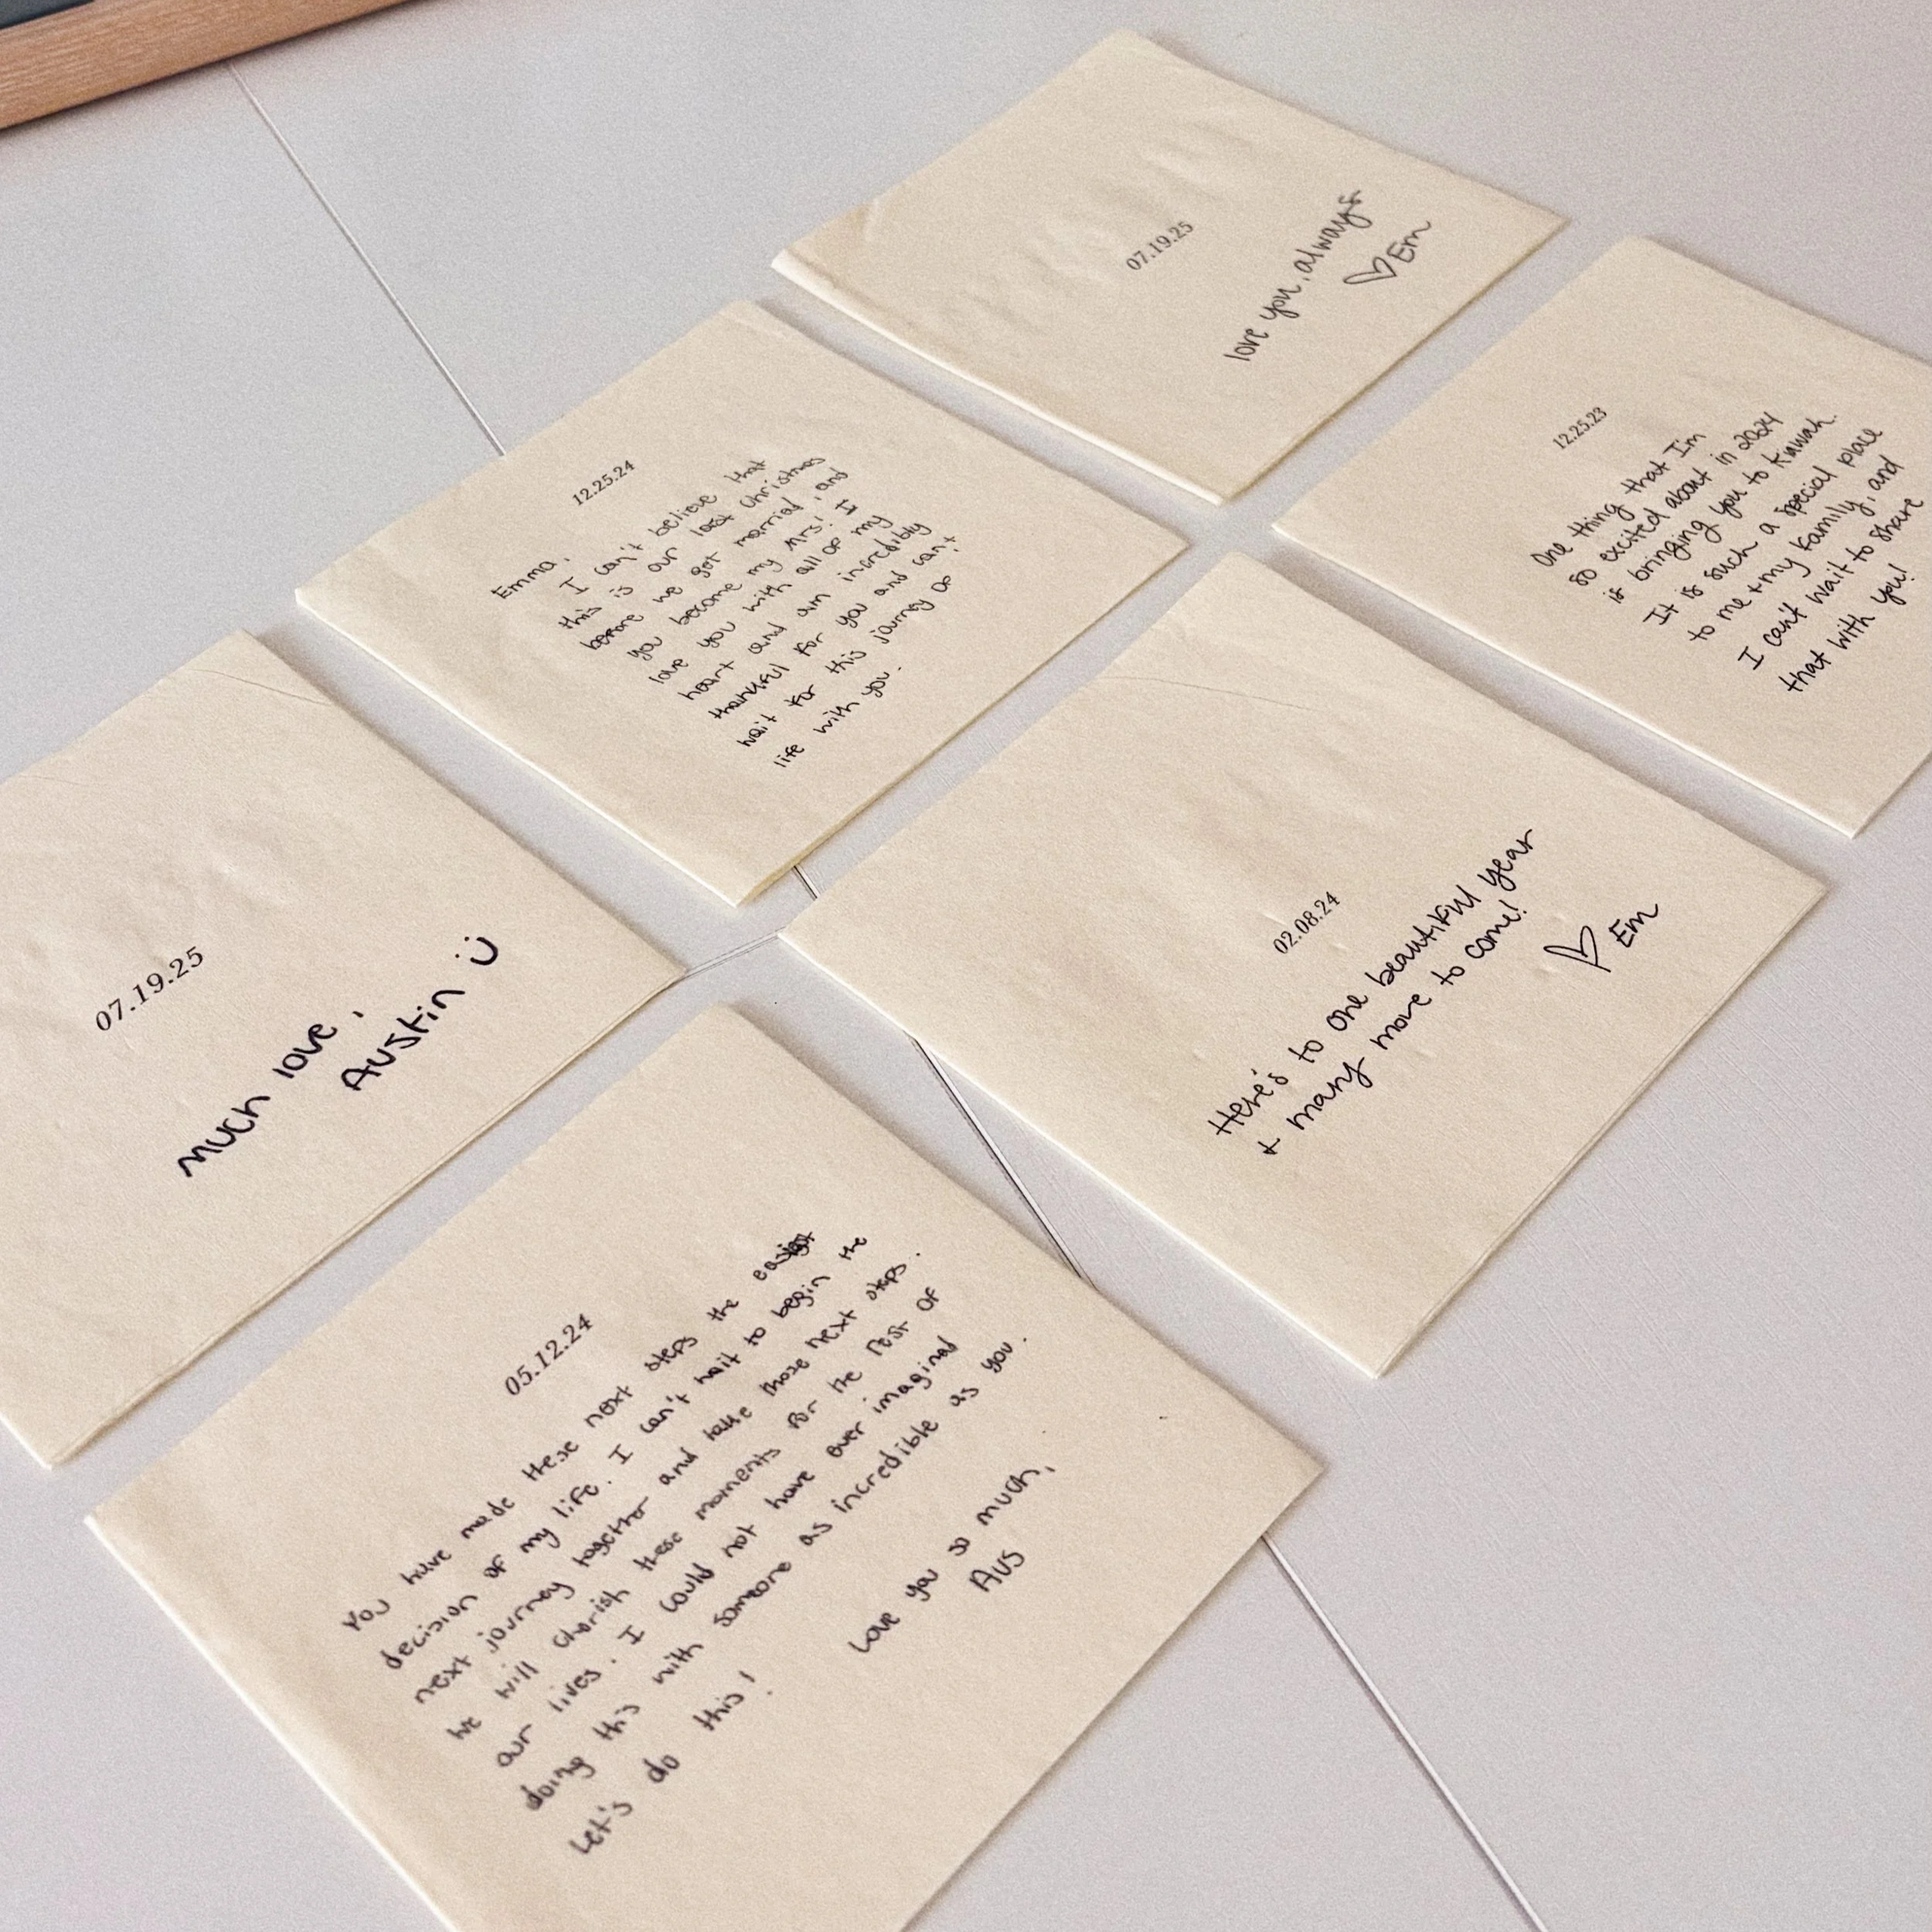 07.19.25
love you, always
♡ Em
12.25.23
One thing that I'm
so excited about in 2024
is bringing you to Kiawah.
It is such a special place
to me + my family, and
I can't wait to share
that with you!
12.25.24
Emma,
I can't believe that
this is our last Christmas
before we get married, and
you become my Mrs! I
love you with all of my
heart and am incredibly
thankful for you and can't
wait for this journey of
life with you.
02.08.24
Here's to one beautiful year
+ many more to come!
♡ Em
07.19.25
much love,
Austin :)
05.12.24
You have made these next steps the easiest
decision of my life. I can't wait to begin the
next journey together and take those next steps.
We will cherish these moments for the rest of
our lives. I could not have ever imagined
doing this with someone as incredible as you.
Let's do this!
Love you so much,
Aus